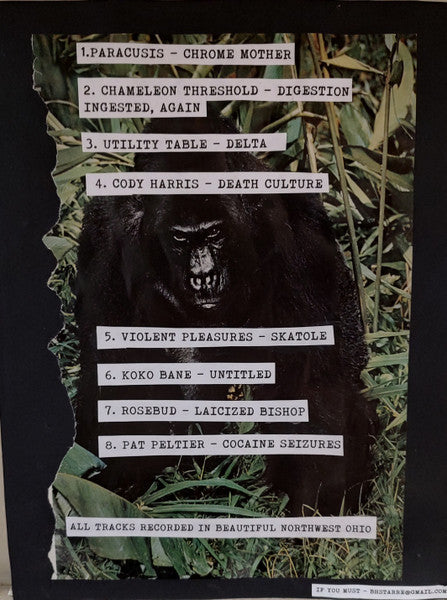 1.PARACUSIS - CHROME MOTHER
2. CHAMELEON THRESHOLD - DIGESTION
INGESTED, AGAIN
3. UTILITY TABLE - DELTA
4. CODY HARRIS - DEATH CULTURE
5. VIOLENT PLEASURES - SKATOLE
6. KOKO BANE - UNTITLED
7. ROSEBUD - LAICIZED BISHOP
8. PAT PELTIER - COCAINE SEIZURES
ALL TRACKS RECORDED IN BEAUTIFUL NORTHWEST OHIO
IF YOU MUST - BHSTARRE@GMAIL.COM